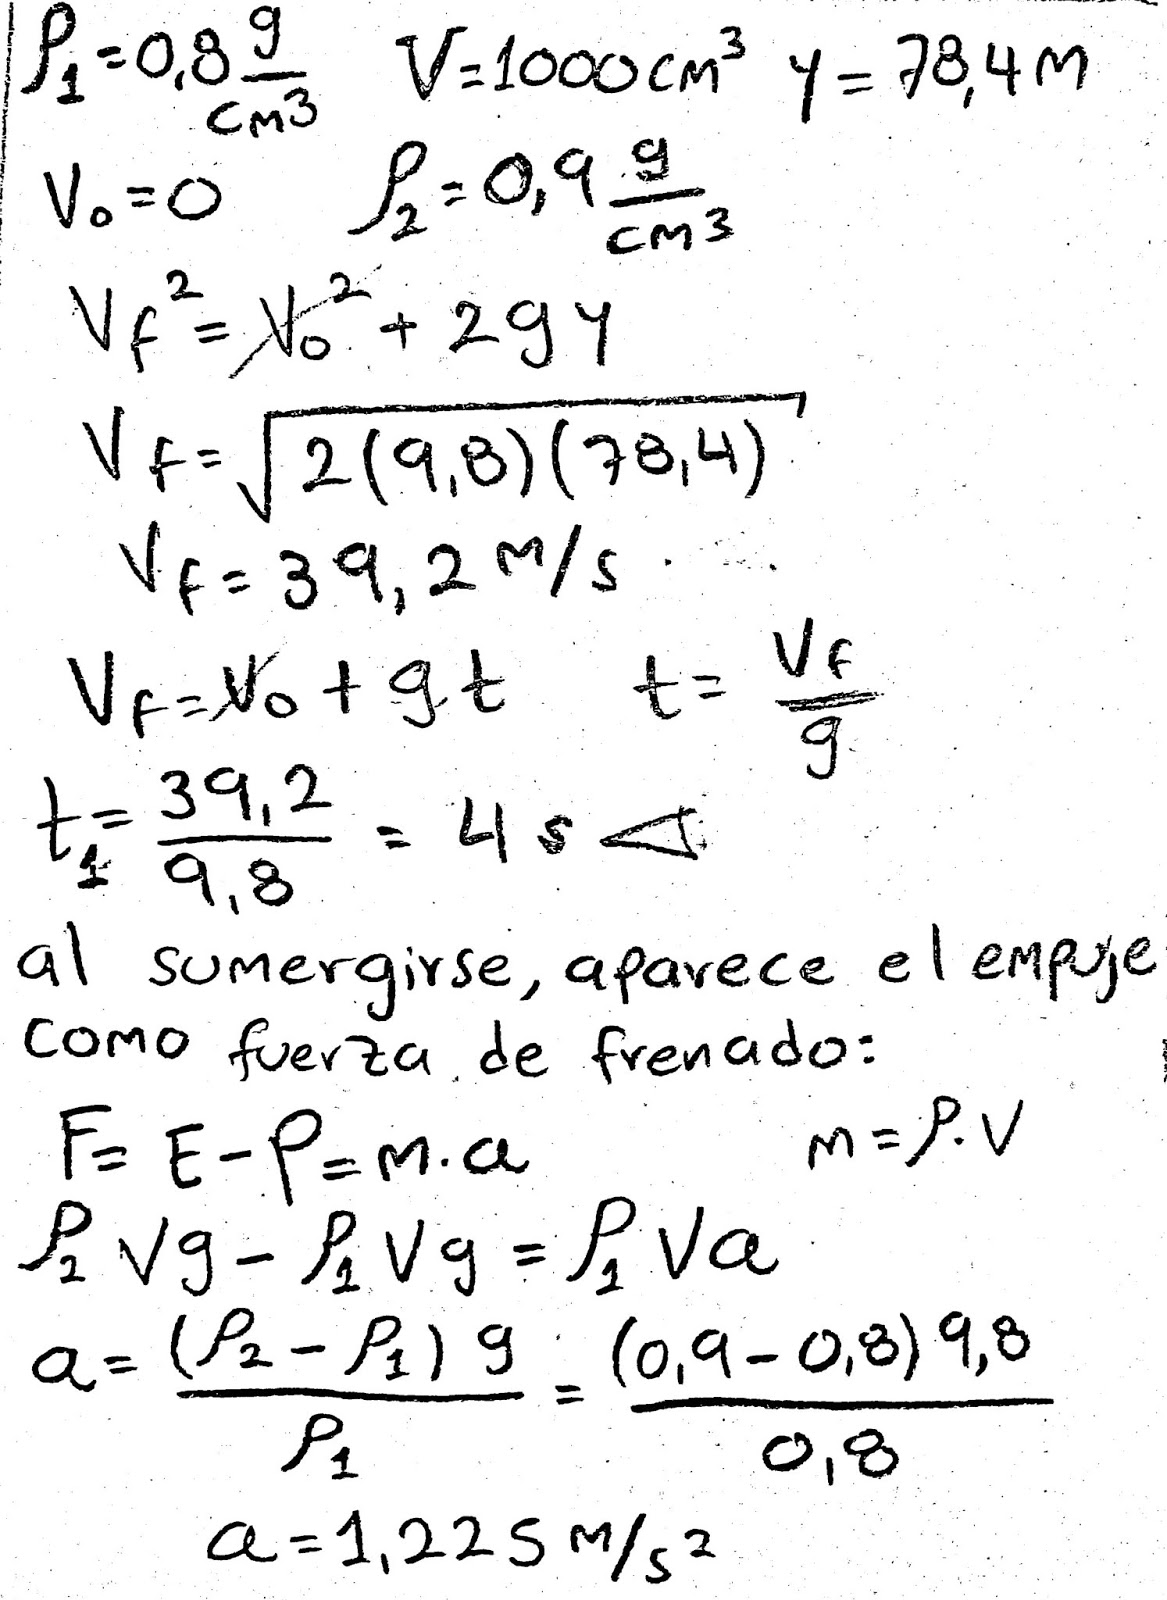 ρ₁=0,8 g/cm3 V=1000cm³ y=78,4m
V₀=0 ρ₂=0,9 g/cm3
Vf²=V₀²+2gy
Vf=√2(9,8)(78,4)
Vf=39,2m/s
Vf=V₀+gt t=Vf/g
t₁=39,2/9,8=4s
al sumergirse, aparece el empuje
como fuerza de frenado:
F=E-P=m.a m=ρ.V
ρ₂Vg-ρ₁Vg=ρ₁Va
a=(ρ₂-ρ₁)g/ρ₁=(0,9-0,8)9,8/0,8
a=1,225m/s²